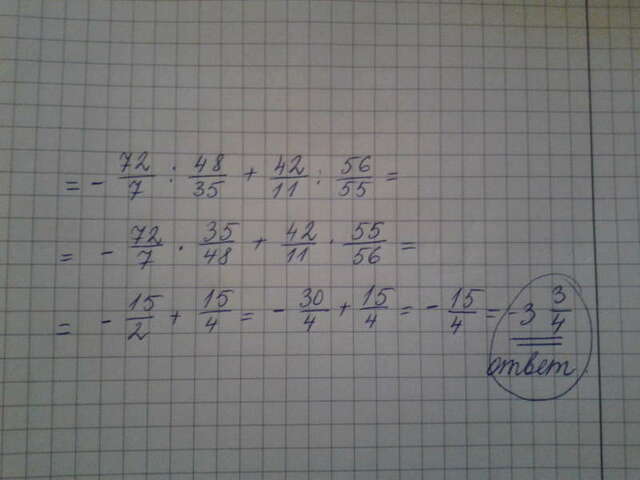 = - 72/7 : 48/35 + 42/11 : 56/55 =
= - 72/7 · 35/48 + 42/11 · 55/56 =
= - 15/2 + 15/4 = - 30/4 + 15/4 = - 15/4 = -3 3/4
ответ